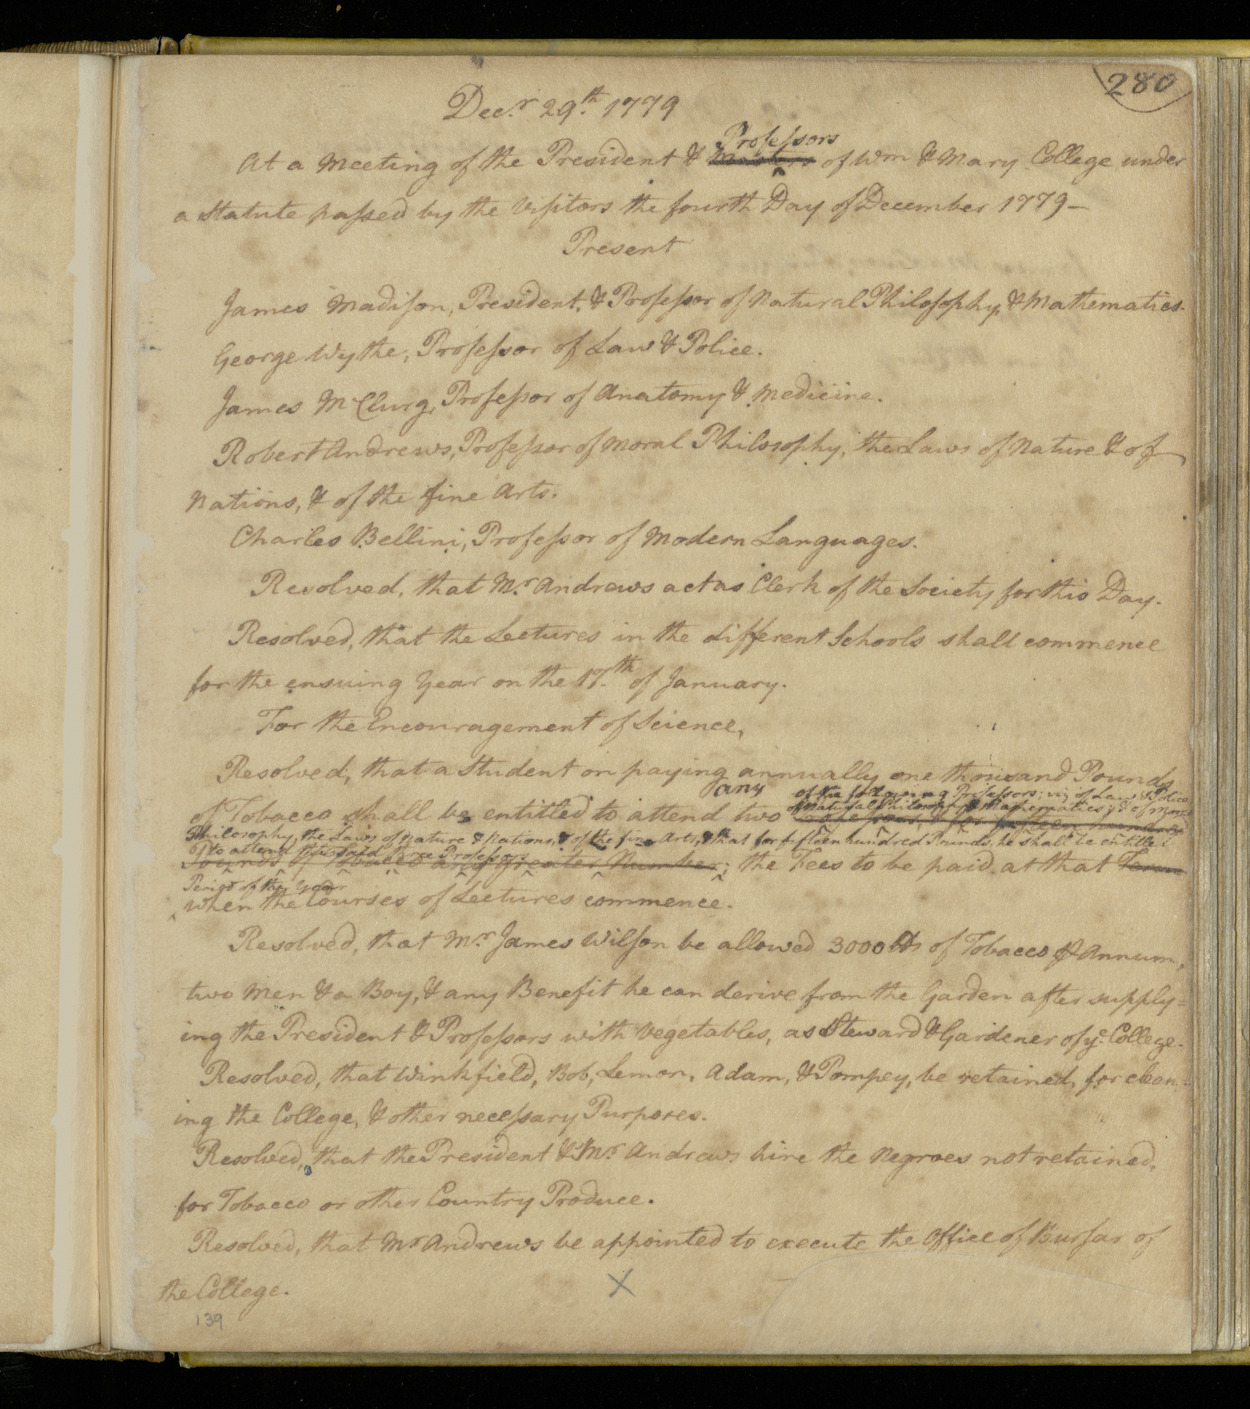 280
Decr. 29th. 1779
At a Meeting of the President & Masters Professors of Wm & Mary College under
a Statute passed by the Visitors the fourth Day of December 1779—
Present
James Madison, President, & Professor of Natural Philosophy, & Mathematics.
George Wythe, Professor of Law & Police.
James McClurg, Professor of Anatomy & Medicine.
Robert Andrews, Professor of Moral Philosophy, the Laws of Nature & of
Nations, & of the fine Arts.
Charles Bellini, Professor of Modern Languages.
Resolved, that Mr. Andrews act as Clerk of the Society for this Day.
Resolved, that the Lectures in the different Schools shall commence
for the ensuing Year on the 17th. of January.
For the Encouragement of Science,
Resolved, that a Student on paying annually one thousand Pounds
any of the following Professors; viz of Law & Police
of Tobacco shall be entitled to attend two
of Natural Philosophy & Mathematics; & of Moral
Philosophy, the Laws of Nature & Nations, & of the fine Arts, & that for fifteen hundred Pounds, he shall be entitled
to attend the said three Professors
Pounds of Tobacco greater Number; the Fees to be paid at that Term
Period of the Year
when the Courses of Lectures commence.
Resolved, that Mr. James Wilson be allowed 3000 lbs of Tobacco Annum,
two Men & a Boy, & any Benefit he can derive from the Garden after supply=
ing the President & Professors with Vegetables, as Steward & Gardener of ye. College.
Resolved, that Winkfield, Bob, Lemon, Adam, & Pompey, be retained, for clean-
ing the College, & other necessary Purposes.
Resolved, that the President & Mr. Andrews hire the Negroes not retained,
for Tobacco or other Country Produce.
Resolved, that Mr. Andrews be appointed to execute the Office of Bursar of
the College.
X
139